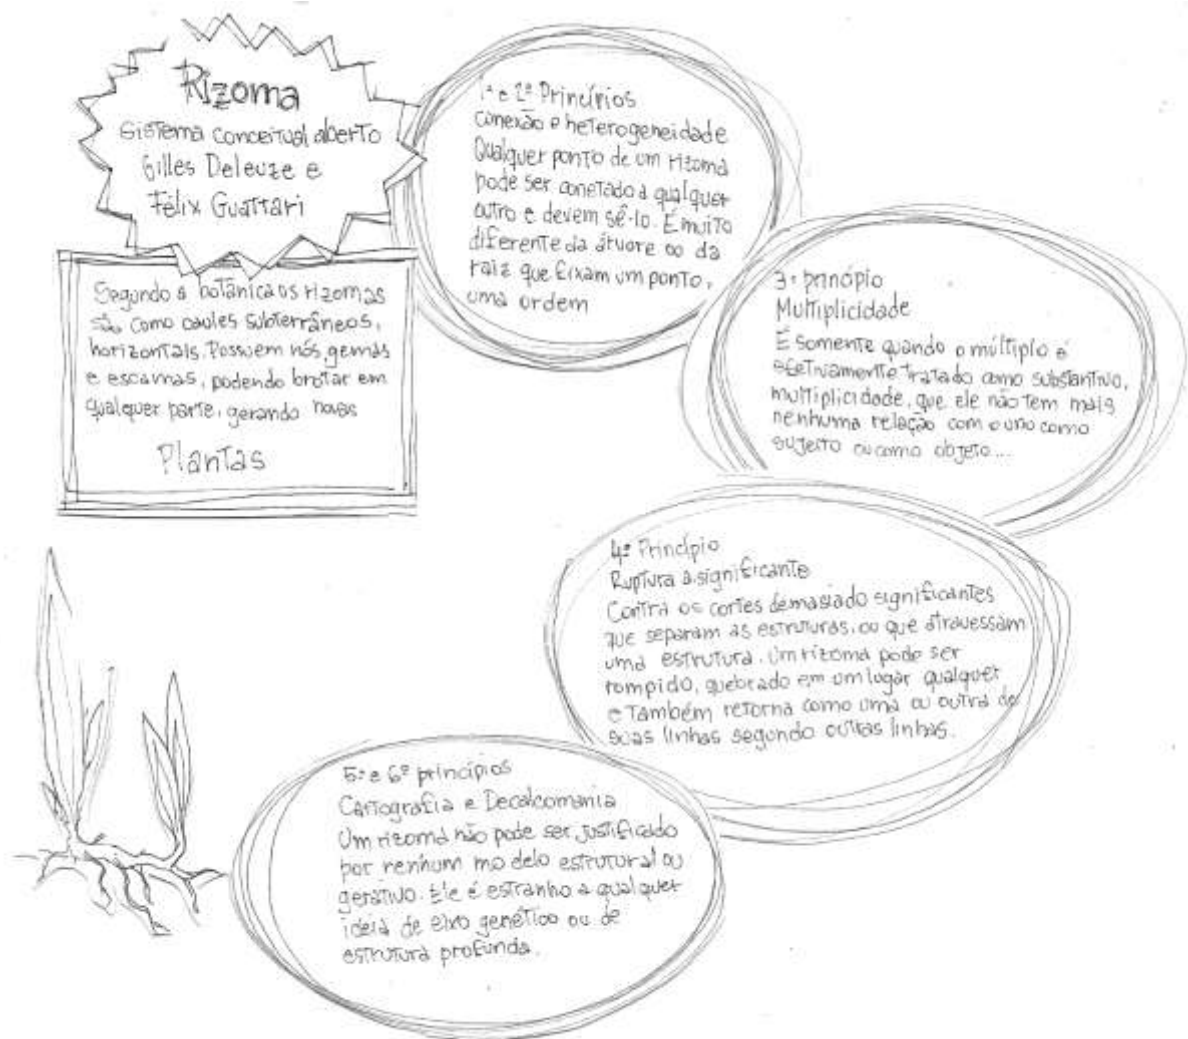 Rizoma
Sistema conceitual aberto
Gilles Deleuze e
Félix Guattari
Segundo a botânica os rizomas
são como caules subterrâneos,
horizontais. Possuem nós, gemas
e escamas, podendo brotar em
qualquer parte, gerando novas
Plantas
1º e 2º Princípios
conexão e heterogeneidade
Qualquer ponto de um rizoma
pode ser conetado a qualquer
outro e devem sê-lo. É muito
diferente da árvore ou da
raiz que fixam um ponto,
uma ordem
3º princípio
Multiplicidade
É somente quando o múltiplo é
efetivamente tratado como substantivo,
multiplicidade, que ele não tem mais
nenhuma relação com o uno como
sujeito ou como objeto...
4º Princípio
Ruptura a significante
Contra os cortes demasiado significantes
que separam as estruturas, ou que atravessam
uma estrutura. Um rizoma pode ser
rompido, quebrado em um lugar qualquer
e também retorna como uma ou outra de
suas linhas segundo outras linhas.
5º e 6º princípios
Cartografia e Decalcomania
Um rizoma não pode ser justificado
por nenhum modelo estrutural ou
gerativo. Ele é estranho a qualquer
ideia de eixo genético ou de
estrutura profunda.